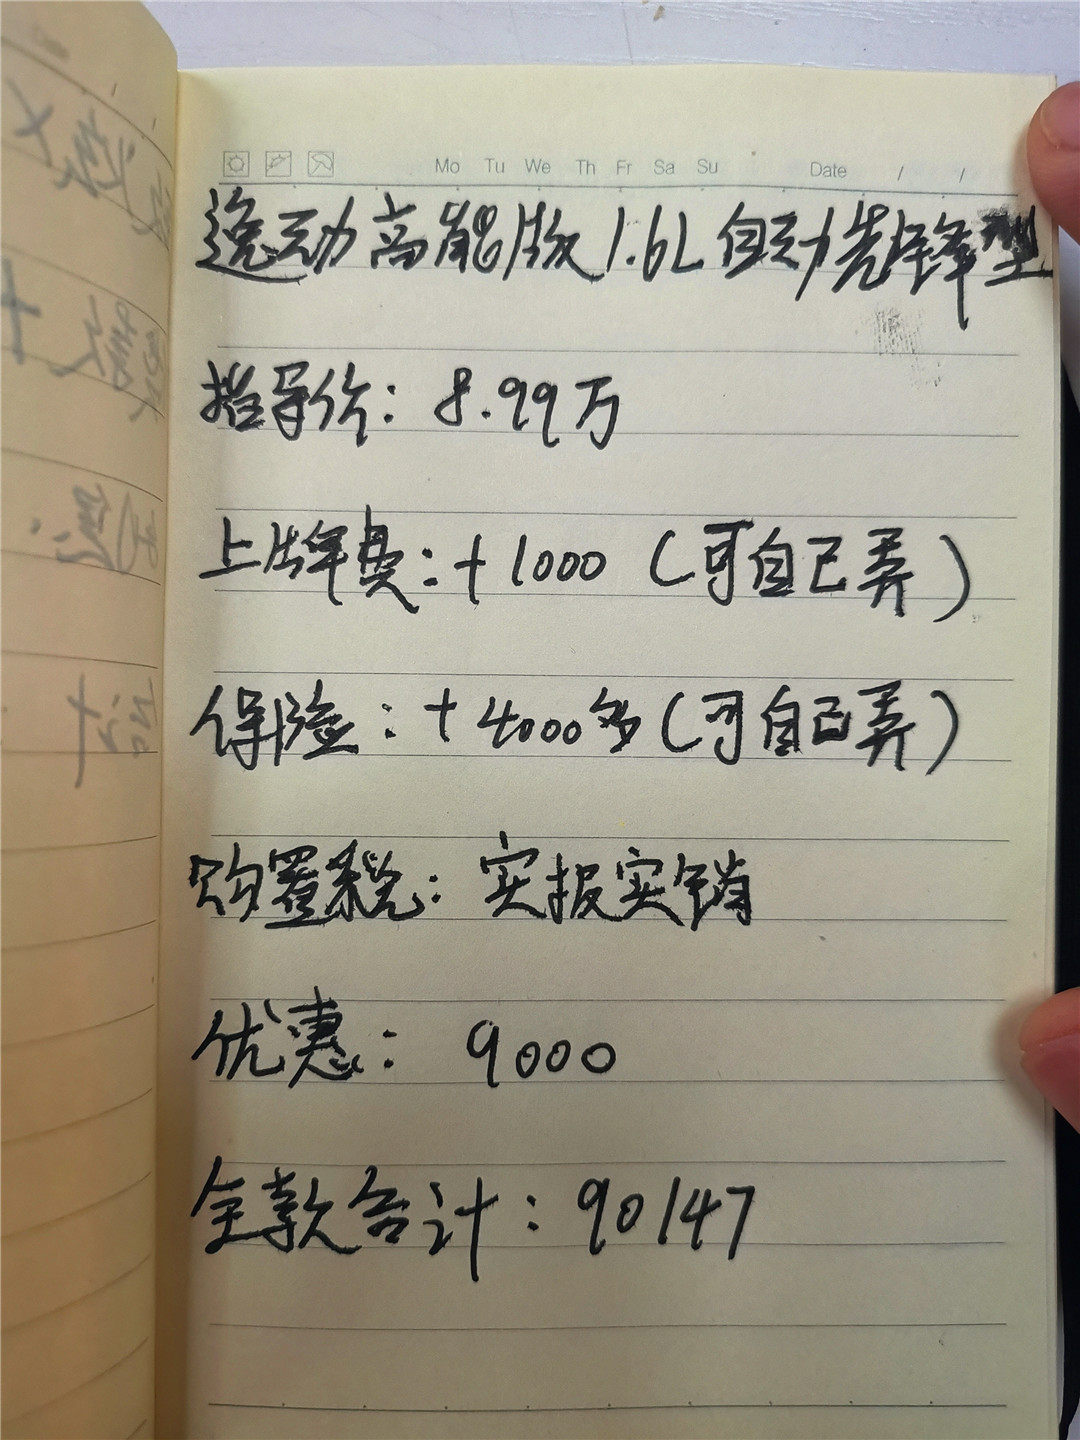 Mo Tu We Th Fr Sa Su Date / /
逸动高能版1.6L自动先锋型
指导价：8.99万
上牌费：+1000（可自己弄）
保险：+4000多（可自己弄）
购置税：实报实销
优惠：9000
全款合计：90147